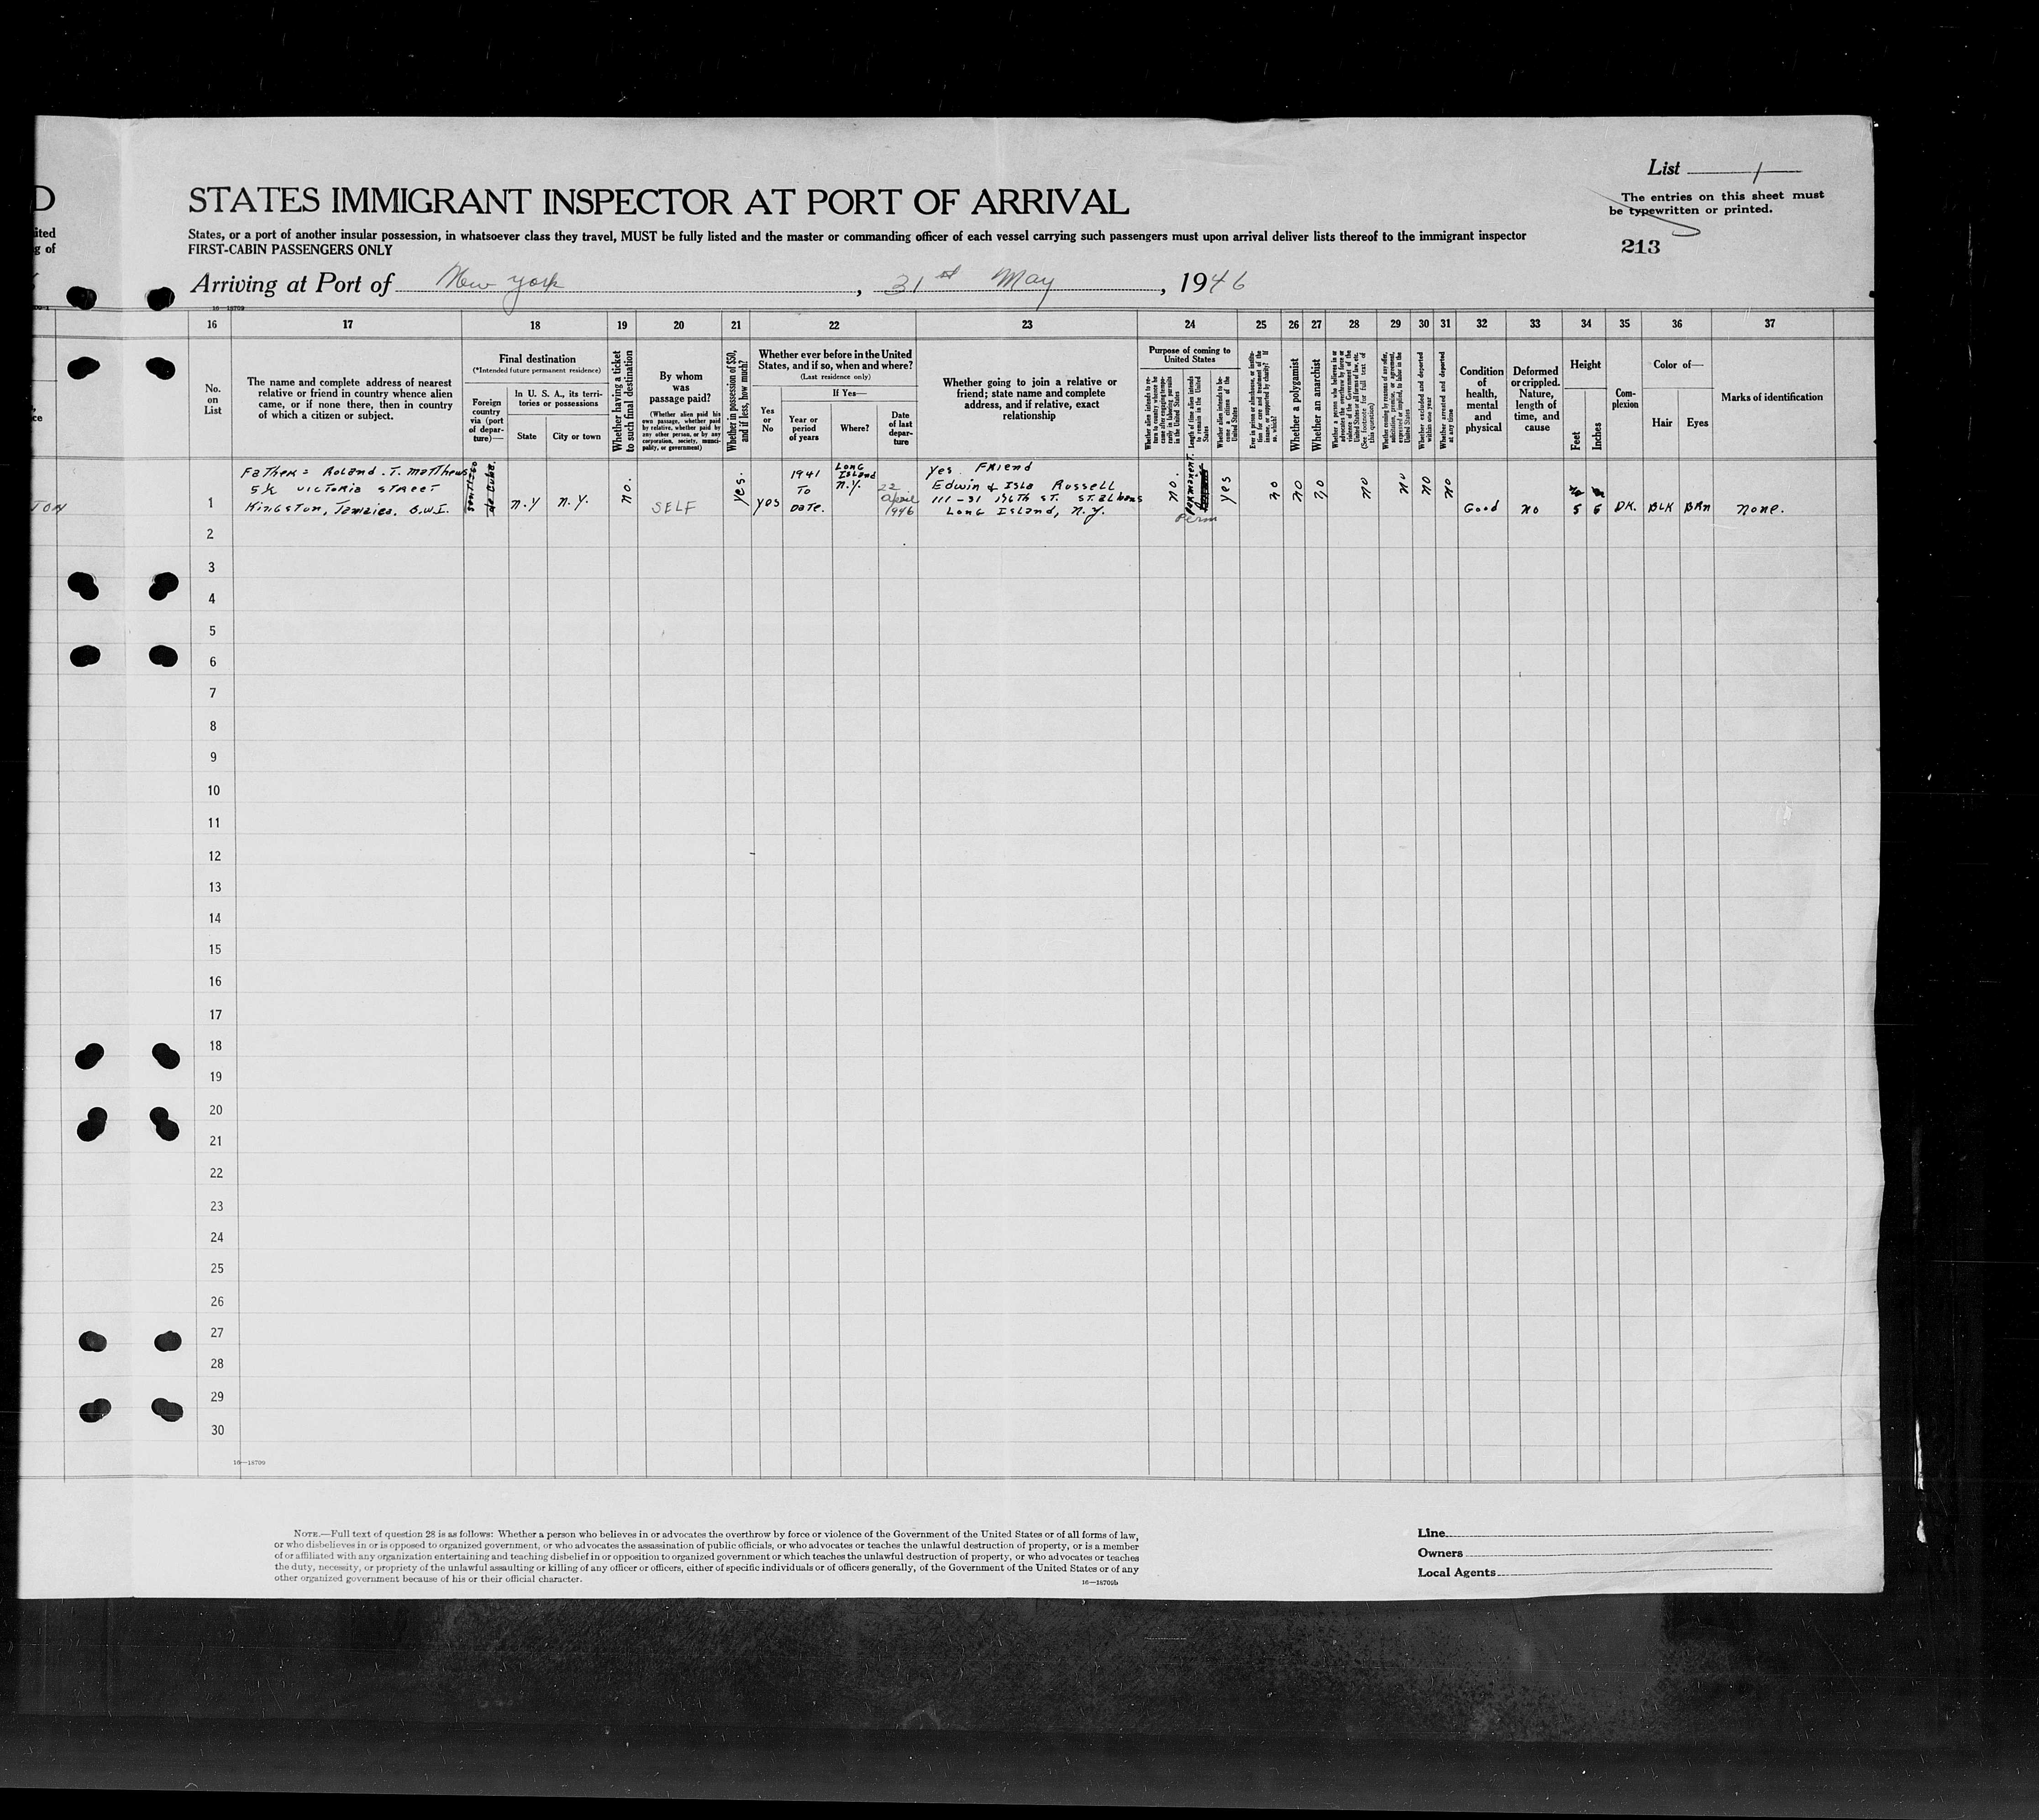 List 1
The entries on this sheet must
be typewritten or printed.
213
D
STATES IMMIGRANT INSPECTOR AT PORT OF ARRIVAL
ited
g of
States, or a port of another insular possession, in whatsoever class they travel, MUST be fully listed and the master or commanding officer of each vessel carrying such passengers must upon arrival deliver lists thereof to the immigrant inspector
FIRST-CABIN PASSENGERS ONLY
Arriving at Port of New York, 31st May, 1946
16—18709
16 17 18 19 20 21 22 23 24 25 26 27 28 29 30 31 32 33 34 35 36 37
No.
on
List
The name and complete address of nearest
relative or friend in country whence alien
came, or if none there, then in country
of which a citizen or subject.
Final destination
(*Intended future permanent residence)
Foreign
country
via (port
of depar-
ture)—
In U. S. A., its terri-
tories or possessions
State
City or town
Whether having a ticket
to such final destination
By whom
was
passage paid?
(Whether alien paid his
own passage, whether paid
by relative, whether paid by
any other person, or by any
corporation, society, munici-
pality, or government)
Whether in possession of $50,
and if less, how much?
Whether ever before in the United
States, and if so, when and where?
(Last residence only)
Yes
or
No
If Yes—
Year or
period
of years
Where?
Date
of last
depar-
ture
Whether going to join a relative or
friend; state name and complete
address, and if relative, exact
relationship
Purpose of coming to
United States
Whether alien intends to re-
turn to country whence he
came after engaging tempo-
rarily in laboring pursuits
in the United States
Length of time alien intends
to remain in the United
States
Whether alien intends to be-
come a citizen of the
United States
Ever in prison or almshouse, or institu-
tion for care and treatment of the
insane, or supported by charity? If
so, which?
Whether a polygamist
Whether an anarchist
Whether a person who believes in or
advocates the overthrow by force or
violence of the Government of the
United States or all forms of law, etc.
(See footnote for full text of
this question)
Whether coming by reason of any offer,
solicitation, promise, or agreement,
expressed or implied, to labor in the
United States
Whether excluded and deported
within one year
Whether arrested and deported
at any time
Condition
of
health,
mental
and
physical
Deformed
or crippled.
Nature,
length of
time, and
cause
Height
Feet
Inches
Com-
plexion
Color of—
Hair
Eyes
Marks of identification
TON
1
Father = Roland. T. Matthews
5½ Victoria Street
Kingston, Jamaica, B.W.I.
Santiago
de Cuba.
N.Y
N.Y.
No.
SELF
Yes.
Yes
1941
To
Date.
Long
Island
N.Y.
22
April
1946
Yes. Friend
Edwin & Isla Russell
111-31 176th St. St. Albans
Long Island, N.Y.
No.
Permanent.
Perm
Yes
No
No
No
No
No
No
No
Good
No
5
6
DK.
BLK
BRN
None.
2
3
4
5
6
7
8
9
10
11
12
13
14
15
16
17
18
19
20
21
22
23
24
25
26
27
28
29
30
16—18709
NOTE.—Full text of question 28 is as follows: Whether a person who believes in or advocates the overthrow by force or violence of the Government of the United States or of all forms of law,
or who disbelieves in or is opposed to organized government, or who advocates the assassination of public officials, or who advocates or teaches the unlawful destruction of property, or is a member
of or affiliated with any organization entertaining and teaching disbelief in or opposition to organized government or which teaches the unlawful destruction of property, or who advocates or teaches
the duty, necessity, or propriety of the unlawful assaulting or killing of any officer or officers, either of specific individuals or of officers generally, of the Government of the United States or of any
other organized government because of his or their official character.
16—18709b
Line
Owners
Local Agents